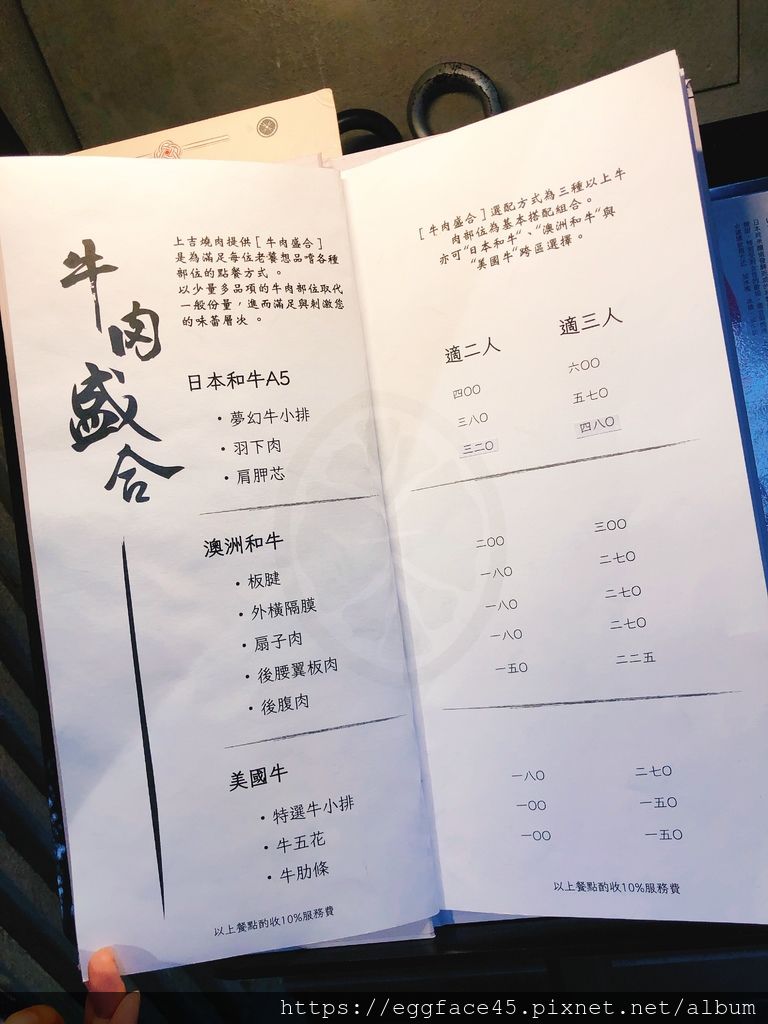 牛肉盛合
上吉燒肉提供［牛肉盛合］
是為滿足每位老饕想品嚐各種
部位的點餐方式。
以少量多品項的牛肉部位取代
一般份量，進而滿足與刺激您
的味蕾層次。
日本和牛A5
・夢幻牛小排
・羽下肉
・肩胛芯
澳洲和牛
・板腱
・外橫隔膜
・扇子肉
・後腰翼板肉
・後腹肉
美國牛
・特選牛小排
・牛五花
・牛肋條
以上餐點酌收10%服務費
［牛肉盛合］選配方式為三種以上牛
肉部位為基本搭配組合。
亦可"日本和牛"、"澳洲和牛"與
"美國牛"跨區選擇。
適二人 適三人
四〇〇 六〇〇
三八〇 五七〇
三二〇 四八〇
二〇〇 三〇〇
一八〇 二七〇
一八〇 二七〇
一八〇 二七〇
一五〇 二二五
一八〇 二七〇
一〇〇 一五〇
一〇〇 一五〇
以上餐點酌收10%服務費
https://eggface45.pixnet.net/album